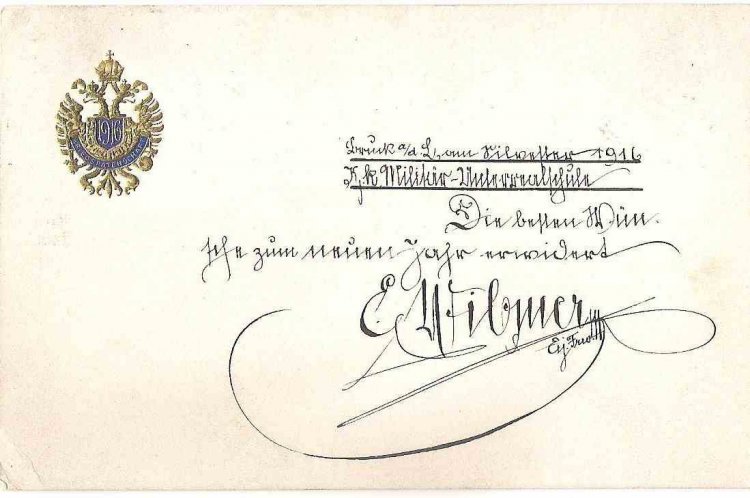 1916
Bruck a/d. L, am Silvester 1916
K.k. Militär-Unterrealschule
Die besten Wün-
sche zum neuen Jahr erwidert